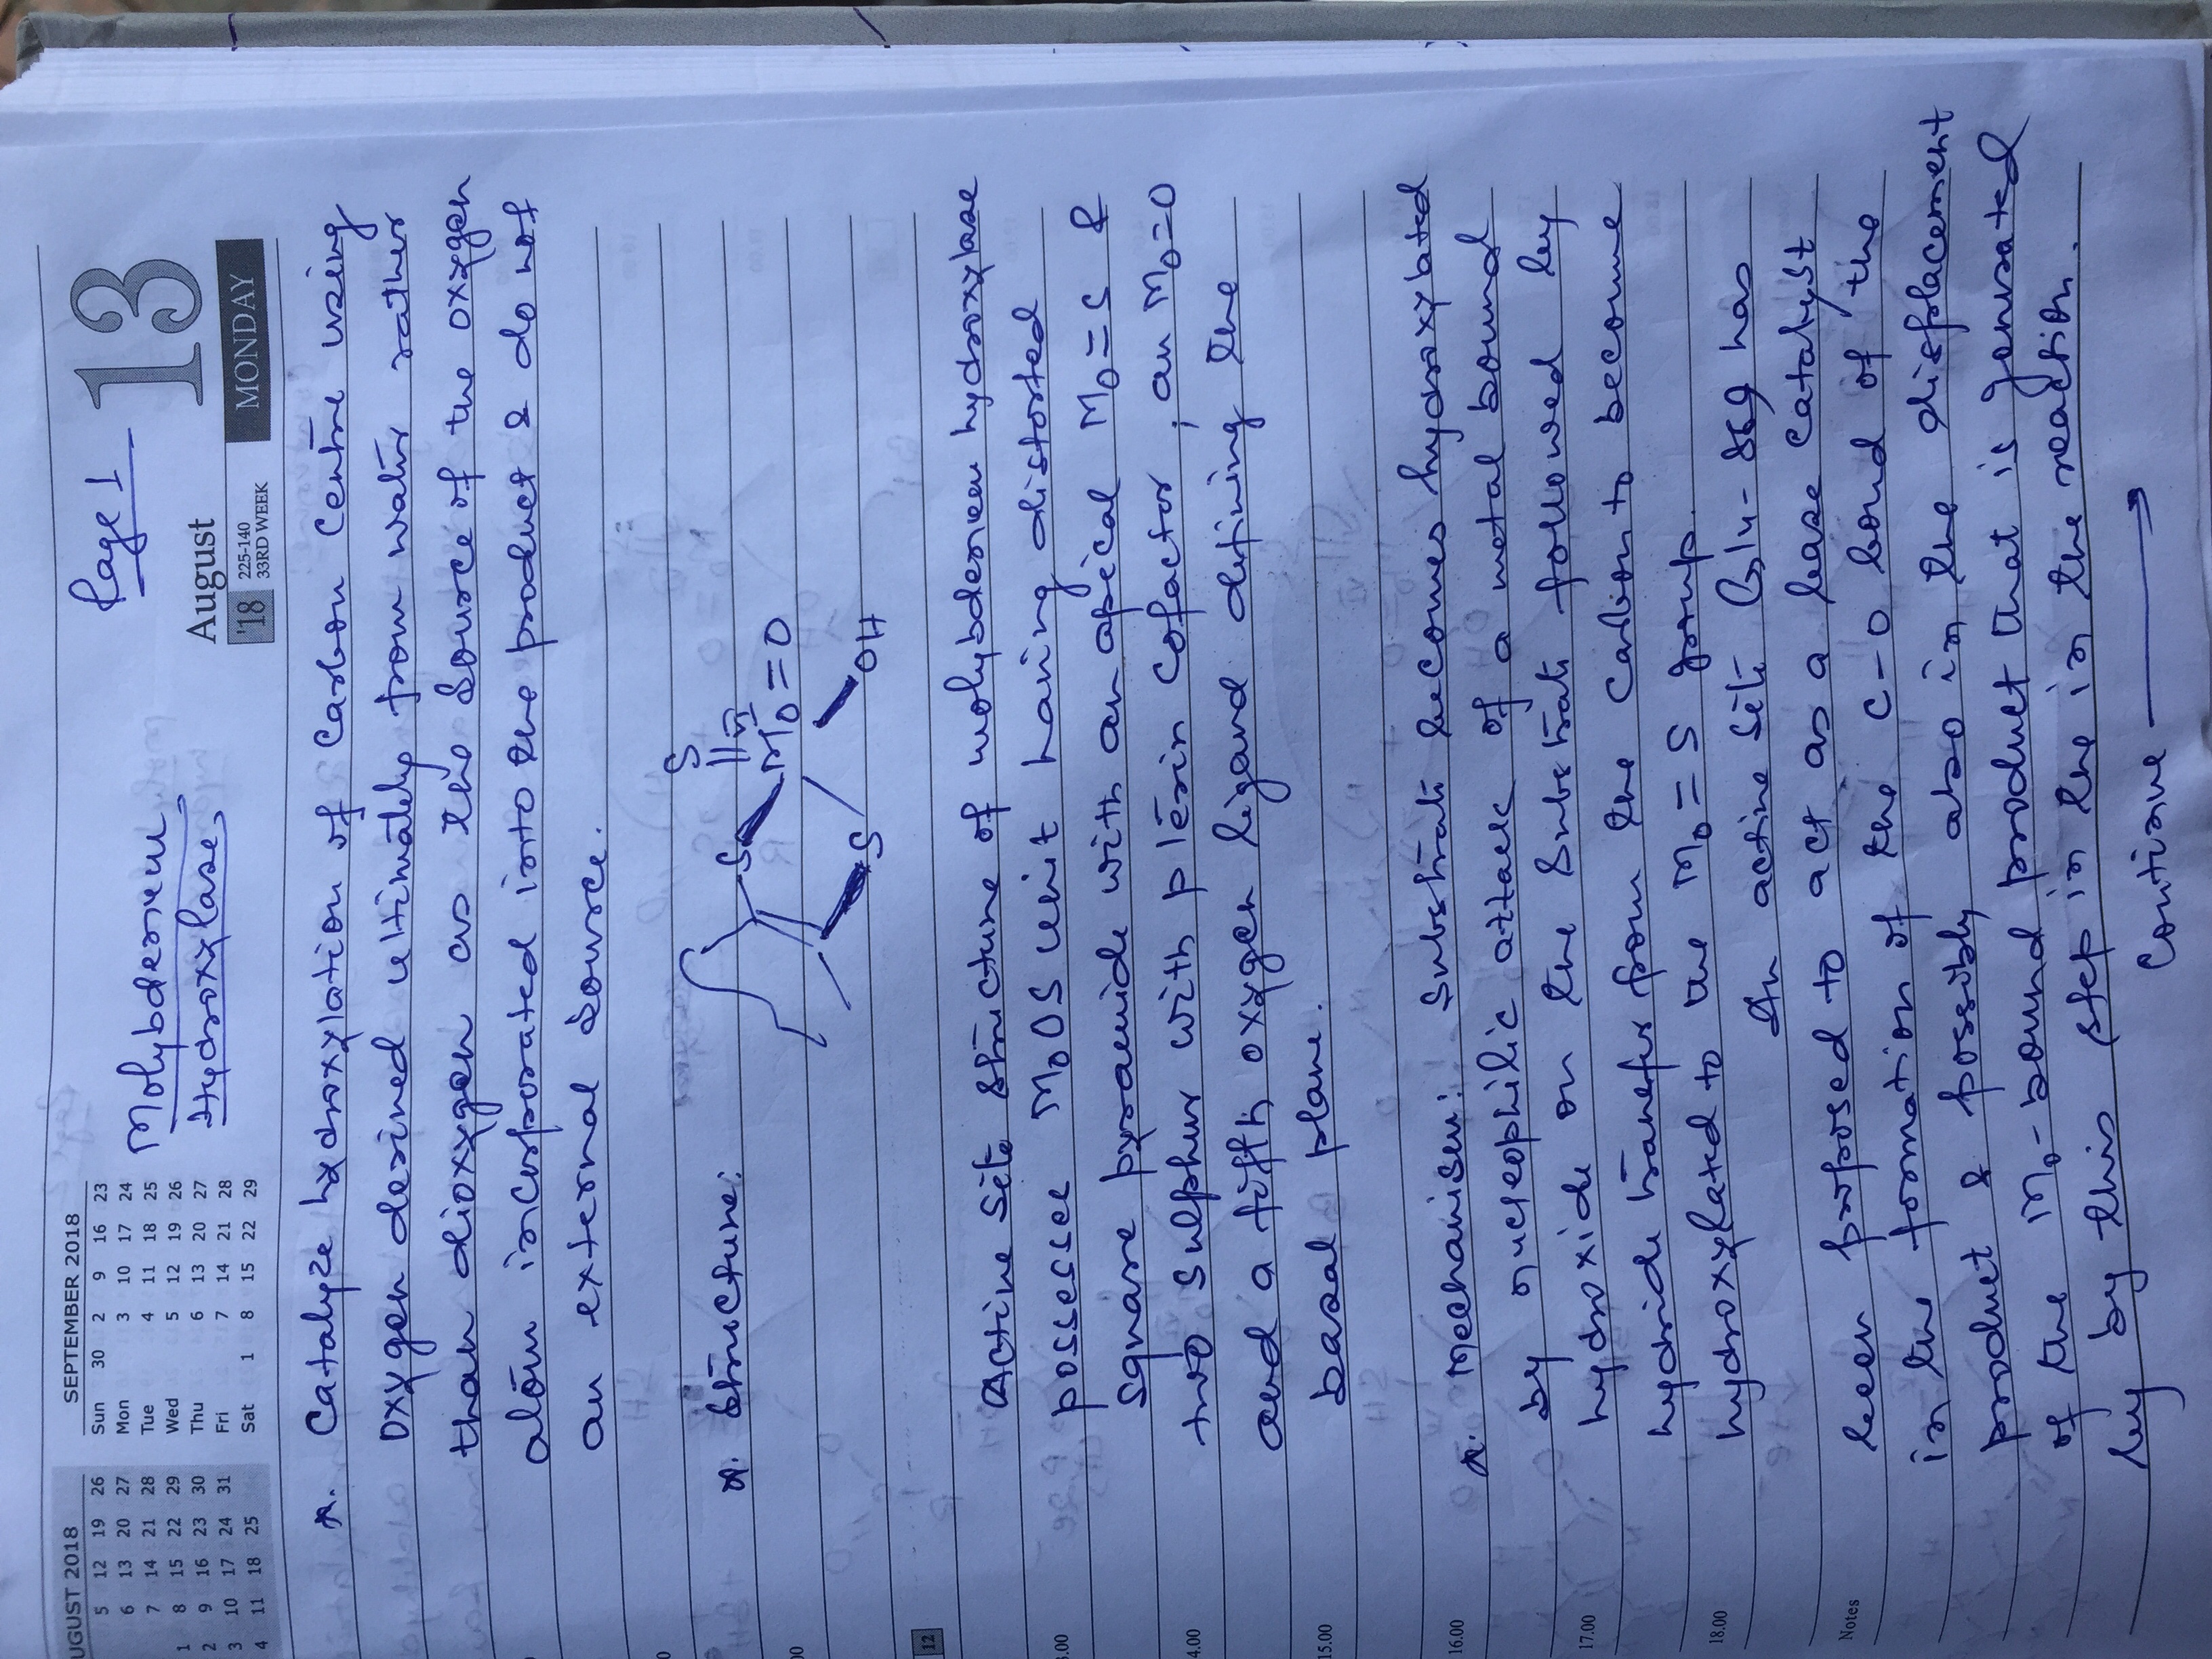 AUGUST 2018
5 12 19 26
6 13 20 27
7 14 21 28
1 8 15 22 29
2 9 16 23 30
3 10 17 24 31
4 11 18 25
SEPTEMBER 2018
Sun 30 2 9 16 23
Mon 3 10 17 24
Tue 4 11 18 25
Wed 5 12 19 26
Thu 6 13 20 27
Fri 7 14 21 28
Sat 1 8 15 22 29
Page 1
Molybdenum
Hydroxylase
August
'18 225-140
33RD WEEK
13
MONDAY
Catalyze hydroxylation of Carbon Centre using
oxygen derived ultimately from water rather
than dioxygen as the source of the oxygen
atom incorporated into the product & do not
an external source.
Structure:
S
S Mo=O
VI
S OH
Active site structure of molybdenum hydroxylase
possesse MoOS unit having distorted
square pyramide with an apical Mo=S &
two sulphur with pterin cofactor, an Mo=O
and a fifth oxygen ligand defining the
basal plane.
Mechanism: Substrate becomes hydroxylated
by nucleophilic attack of a metal bound
hydroxide on the substrate followed by
hydride transfer from the carbon to become
hydroxylated to the Mo=S group.
An active site Glu-869 has
been proposed to act as a base catalyst
in the formation of the C-O bond of the
product & possibly also in the displacement
of the Mo-bound product that is generated
by this step in the in the reaction.
Continue
12
3.00
4.00
15.00
16.00
17.00
18.00
Notes